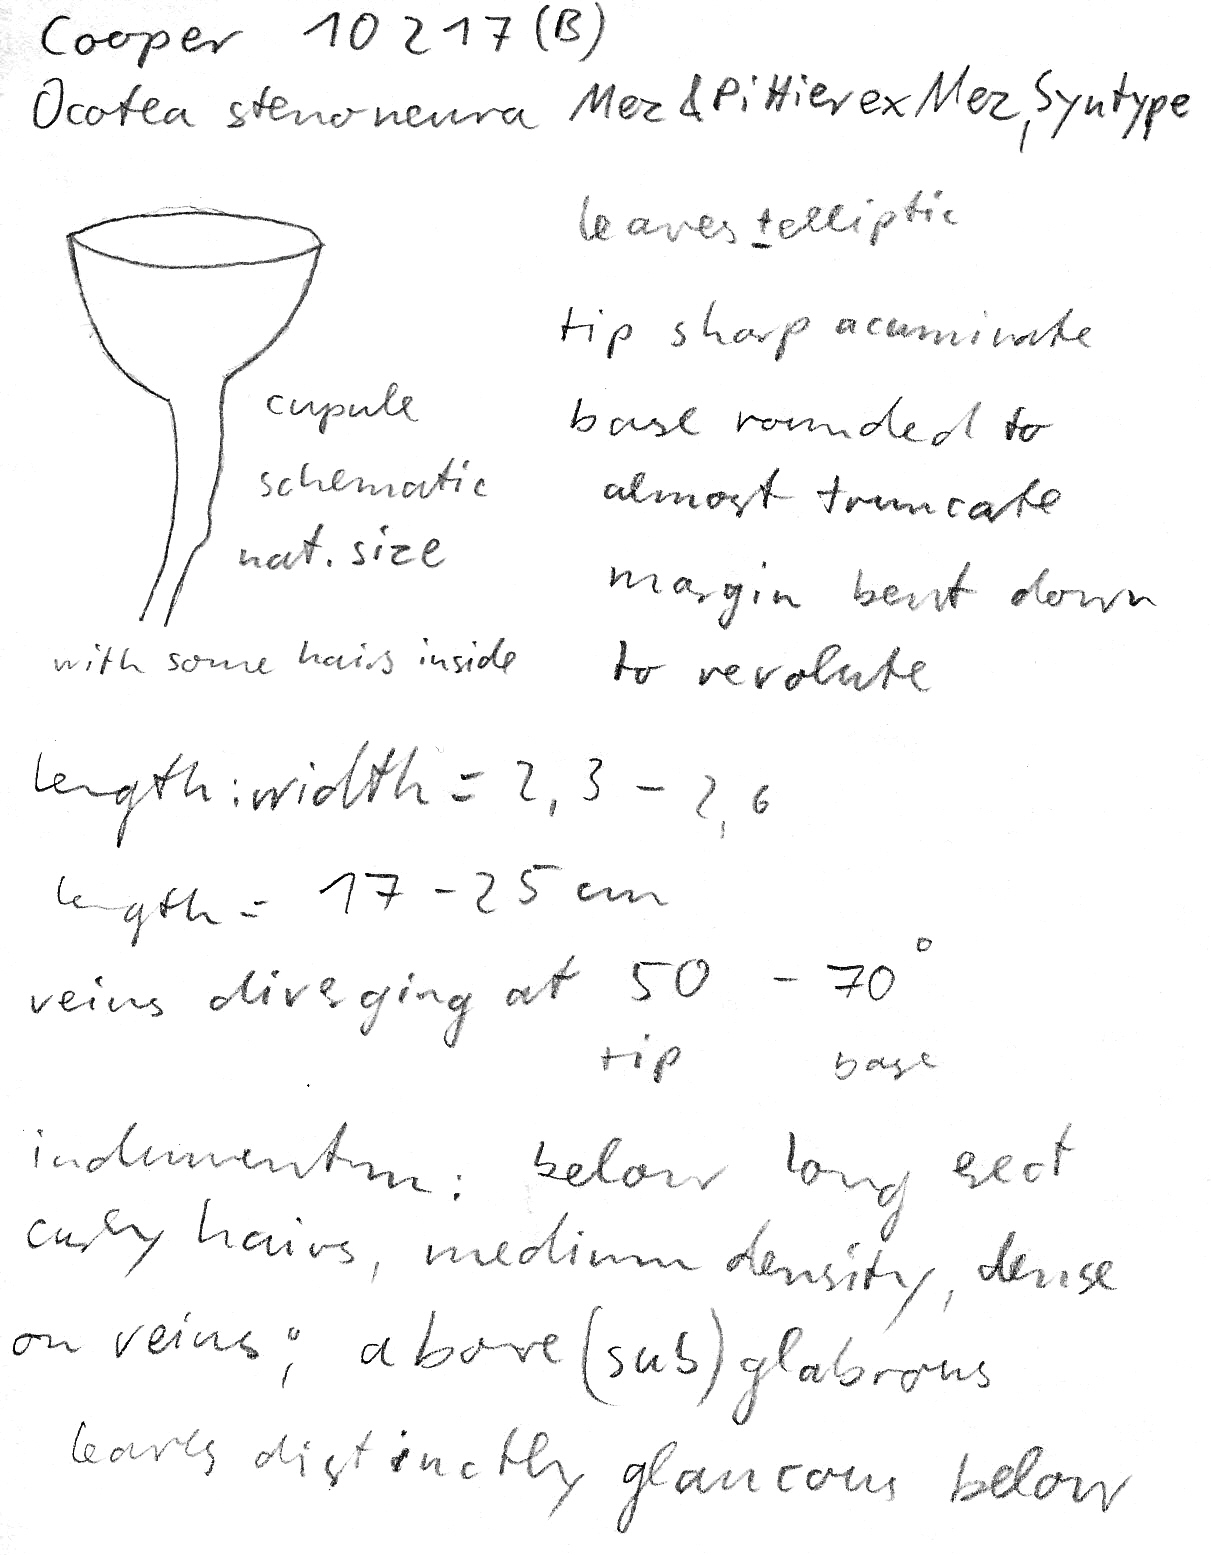 Cooper 10217 (B)
Ocotea stenoneura Mez & Pittier ex Mez, Syntype
leaves ± elliptic
tip sharp acuminate
base rounded to
almost truncate
margin bent down
to revolute
cupule
schematic
nat. size
with some hairs inside
length:width = 2,3 - 2,6
length = 17 - 25 cm
veins diverging at 50 - 70°
tip base
indumentum: below long erect
curly hairs, medium density, dense
on veins; above (sub)glabrous
leaves distinctly glaucous below